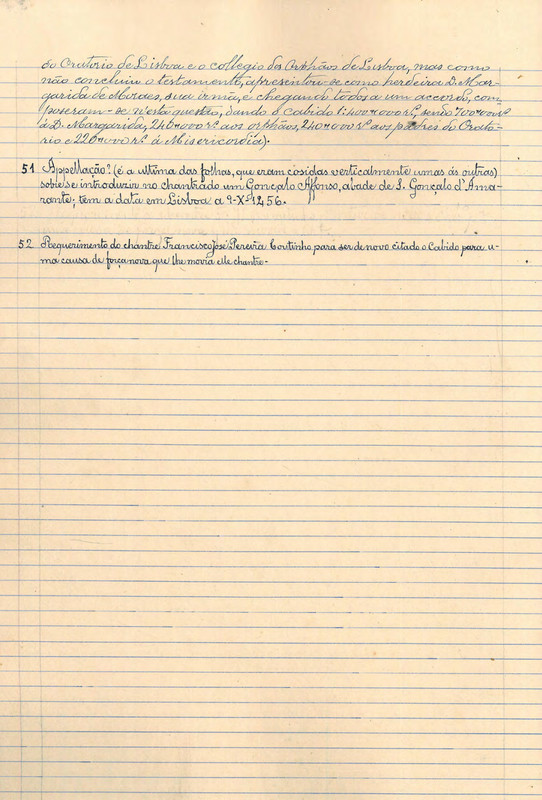 do Oratorio de Lisboa e o collegio dos Orphãos de Lisboa, mas como
não concluiu o testamento, apresentou-se como herdeira D. Mar-
garida de Moraes, sua irmã, e chegando todos a um accordo, com
poseram-se n'esta questão, dando o Cabido 1:400#000 rs, sendo 700#000 rs
á D. Margarida, 240#000 rs aos orphãos, 240#000 rs aos padres do Orato-
rio e 220#000 rs á Misericordia).
51 Appellação? (é a ultima das folhas, que eram cosidas verticalmente umas ás outras)
sobre se introduzir no chantrado um Gonçalo Affonso, abade de S. Gonçalo d'Ama-
rante; tem a data em Lisboa a 9-X-1456.
52 Requerimento do chantre Francisco José Pereira Coutinho para ser de novo citado o Cabido para u-
ma causa de força nova que lhe movia elle chantre.